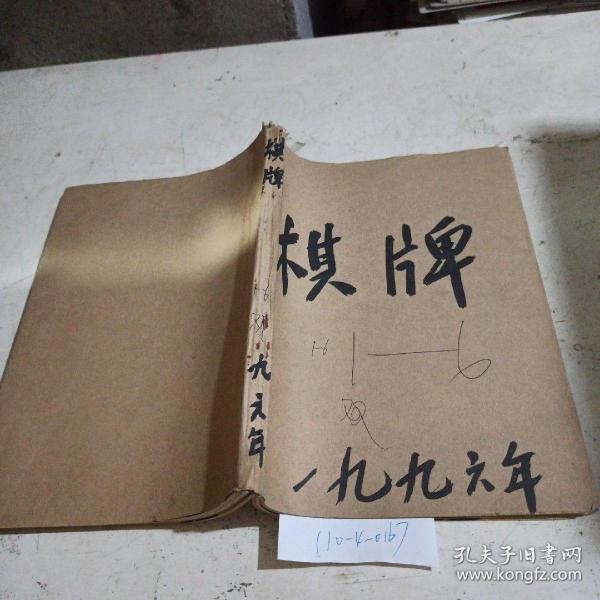 棋牌
九六年
棋牌
1-6
1—6
双
一九九六年
(10-4-016)
孔夫子旧书网
www.kongfz.com